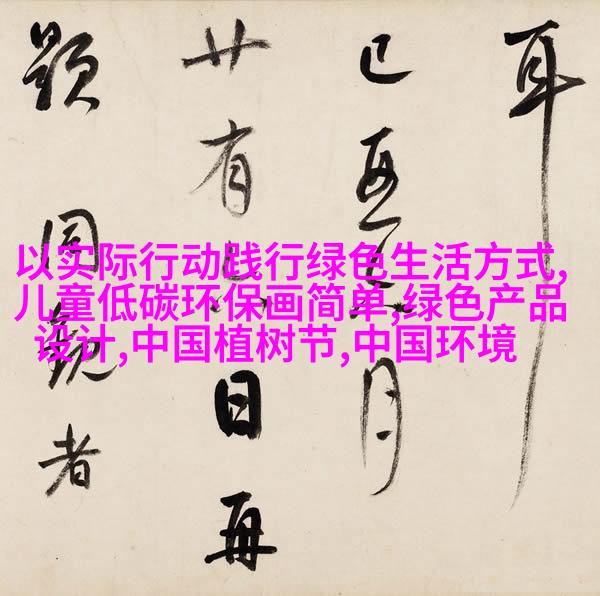 耳
月
廿有日再
題同觀者
以实际行动践行绿色生活方式,
儿童低碳环保画简单,绿色产品
设计,中国植树节,中国环境